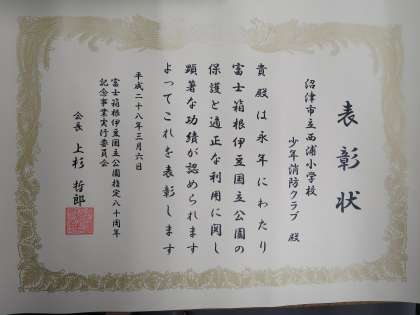 表彰状
沼津市立西浦小学校
少年消防クラブ 殿
貴殿は永年にわたり
富士箱根伊豆国立公園の
保護と適正な利用に関し
顕著な功績が認められます
よってこれを表彰します
平成二十八年三月六日
富士箱根伊豆国立公園指定八十周年
記念事業実行委員会
会長 上杉 哲郎